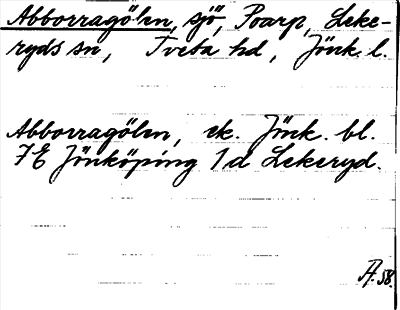 Abborragölen, sjö, Poarp, Leke-
ryds sn, Tveta hd, Jönk. l.
Abborragölen, ek. Jönk. bl.
7E Jönköping 1d Lekeryd.
A. 58.